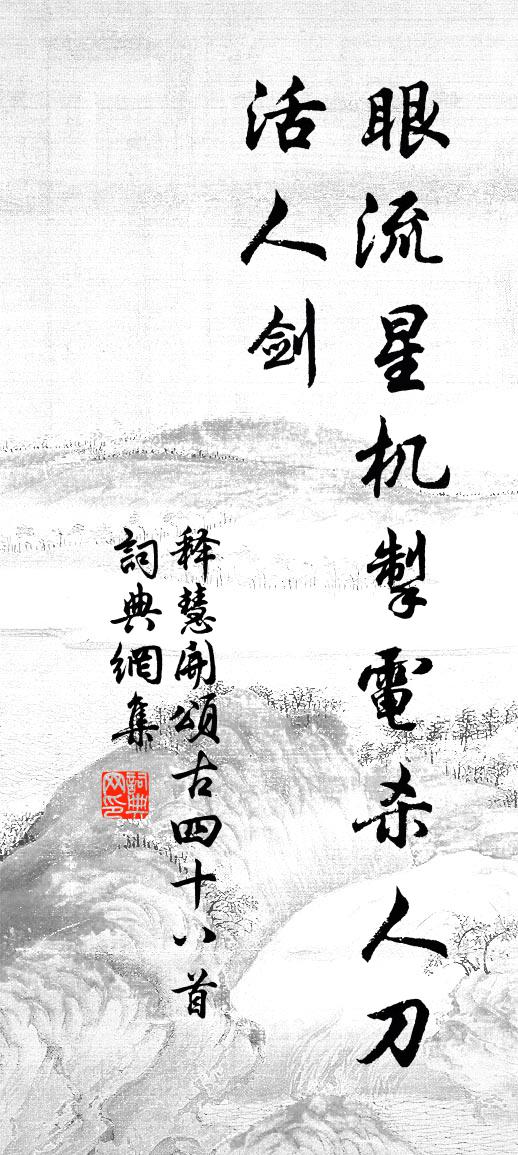 眼流星机掣電杀人刀
活人剑
释慧開頌古四十八首
詞典網集
詞典网印